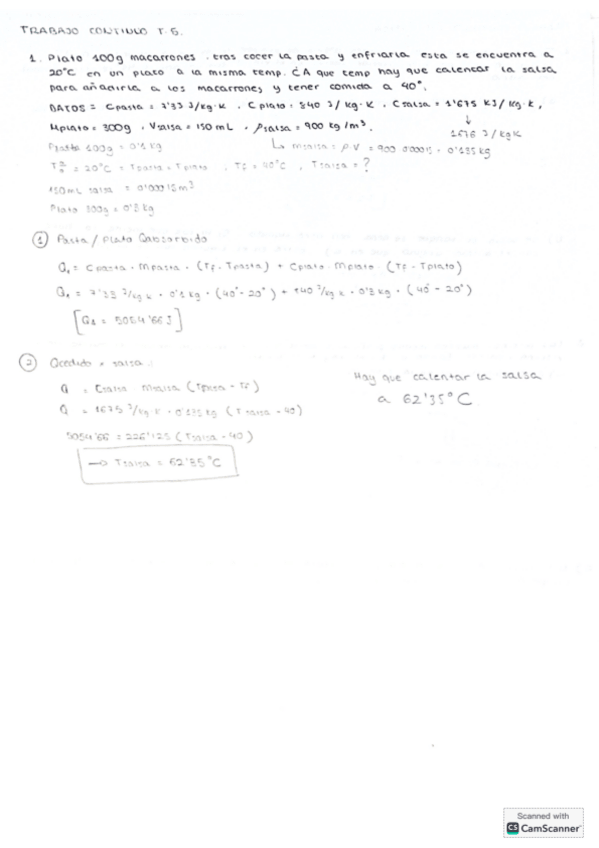 TRABAJO CONTINUO T.5.
1. Plato 100g macarrones. tras cocer la pasta y enfriarla esta se encuentra a
20°C en un plato a la misma temp. ¿A que temp hay que calentar la salsa
para añadirla a los macarrones y tener comida a 40°.
DATOS = Cpasta = 7'33 J/kg·K, Cplato = 840 J/kg·K, Csalsa = 1'675 KJ/kg·K,
Mplato = 300g, Vsalsa = 150 mL, ρsalsa = 900 kg/m³.
↓
1675 J/kgK
Pasta 100g = 0'1 kg
↳ msalsa = ρ·V = 900·0'00015 = 0'135 kg
= 20°C = Tpasta = Tplato, Tf = 40°C, Tsalsa = ?
150mL salsa = 0'00015 m³
Plato 300g = 0'3 kg
① Pasta/Plato Qabsorbido
Q₁ = Cpasta · mpasta · (Tf - Tpasta) + Cplato · Mplato · (Tf - Tplato)
Q₁ = 7'33 J/kg·K · 0'1 kg · (40° - 20°) + 840 J/kg·K · 0'3 kg · (40° - 20°)
[Q₁ = 5054'66 J]
② Qcedido x salsa:
Q = Csalsa Msalsa (Tsalsa - Tf)
Q = 1675 J/kg·K · 0'135 kg (Tsalsa - 40)
5054'66 = 226'125 (Tsalsa - 40)
→ Tsalsa = 62'35°C
Hay que calentar la salsa
a 62'35°C
Scanned with
CS CamScanner